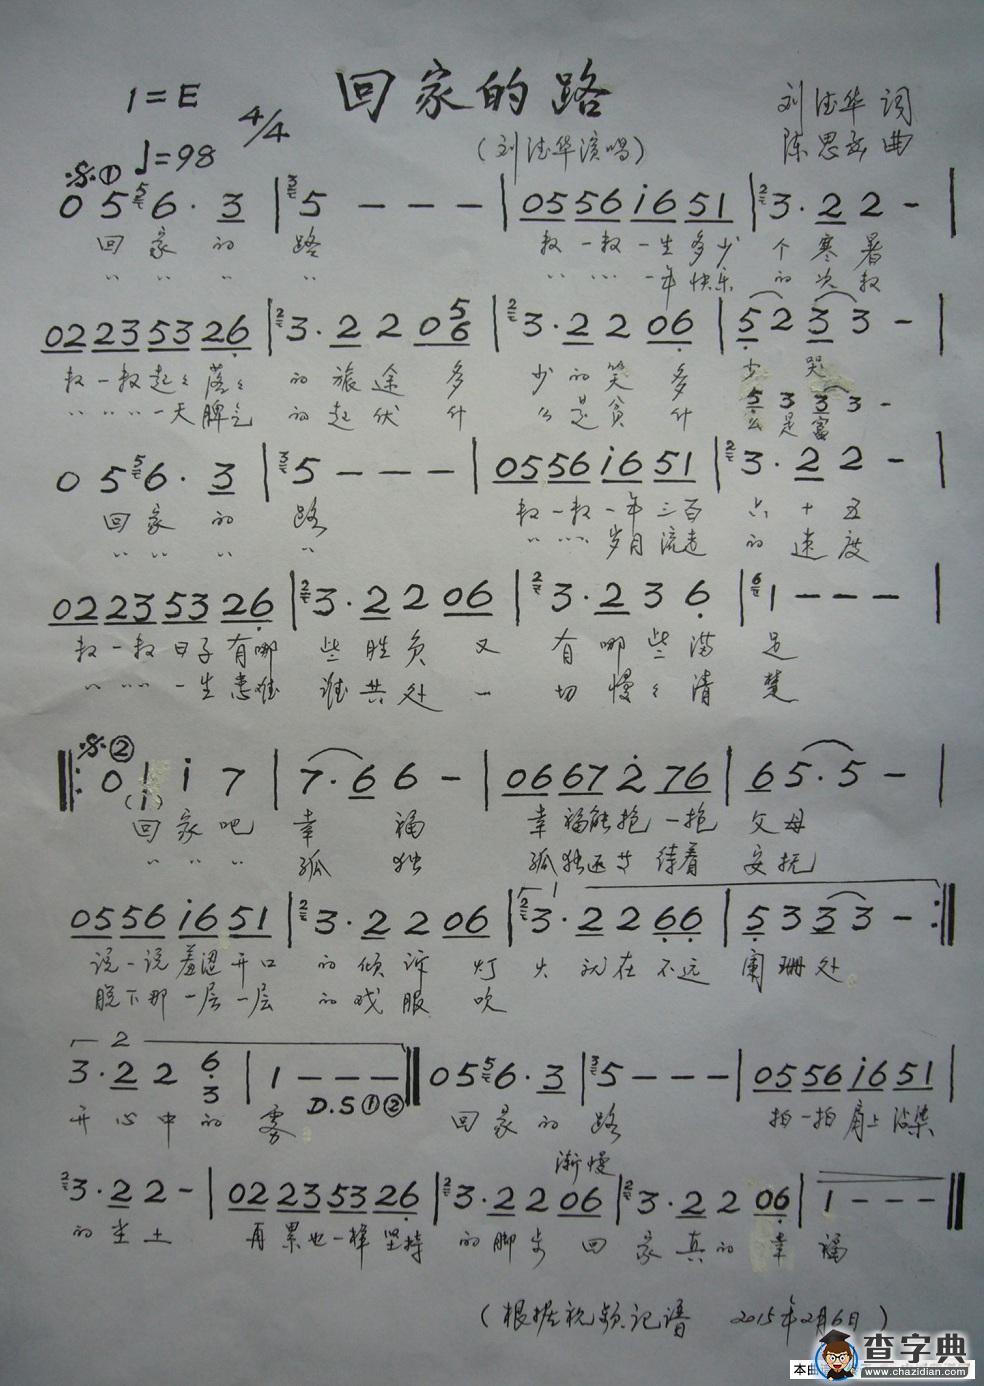 回家的路
1=E 4/4
♩=98
刘德华 词
陈思函 曲
(刘德华演唱)
𝄋① 0 5 6· 3 | 5 - - - | 0556 i6 51 | 3· 2 2 - |
回家的 路 数一数一生多少 个寒暑
〃〃〃 〃 〃〃〃一年快乐 的次数
02 23 53 26 | 3· 2 2 0 5/6 | 3· 2 2 06 | 5 2 3 3 - |
数一数起〻落〻 的旅途 多 少的笑 多 少 哭
5 3 3 3 -
〃〃〃一天脾气 的起伏 什 么是贫 什 么是富
0 5 6· 3 | 5 - - - | 0556 i6 51 | 3· 2 2 - |
回家的 路 数一数一年三百 六十五
〃〃〃 〃 〃〃〃岁月流逝 的速度
02 23 53 26 | 3· 2 2 06 | 3· 2 3 6 | 1 - - - |
数一数日子有哪 些胜负 又 有哪些满 足
〃〃〃一生患难 谁共处 一 切慢〻清 楚
𝄋② 0 i i 7 | 7· 6 6 - | 06 67 2 76 | 6 5· 5 - |
(1)
回家吧 幸 福 幸福能抱一抱 父母
〃〃〃 孤 独 孤独还等待着 安抚
05 56 i6 51 | 3· 2 2 06 | 1 3· 2 2 66 | 5 3 3 3 - :|
说一说羞涩开口 的倾诉 灯 火就在不远 阑珊处
脱下那一层一层 的戏服 吹
2
3· 2 2 6/3 | 1 - - - | 05 6· 3 | 5 - - - | 0556 i6 51 |
D.S①②
开心中的 雾 回家的 路 拍一拍肩上沾染
渐慢
3· 2 2 - | 02 23 53 26 | 3· 2 2 06 | 3· 2 2 06 | 1 - - - ‖
的尘土 再累也一样坚持 的脚步 回 家真的幸 福
(根据视频记谱 2015年2月6日)
本曲
查字典
www.chazidian.com